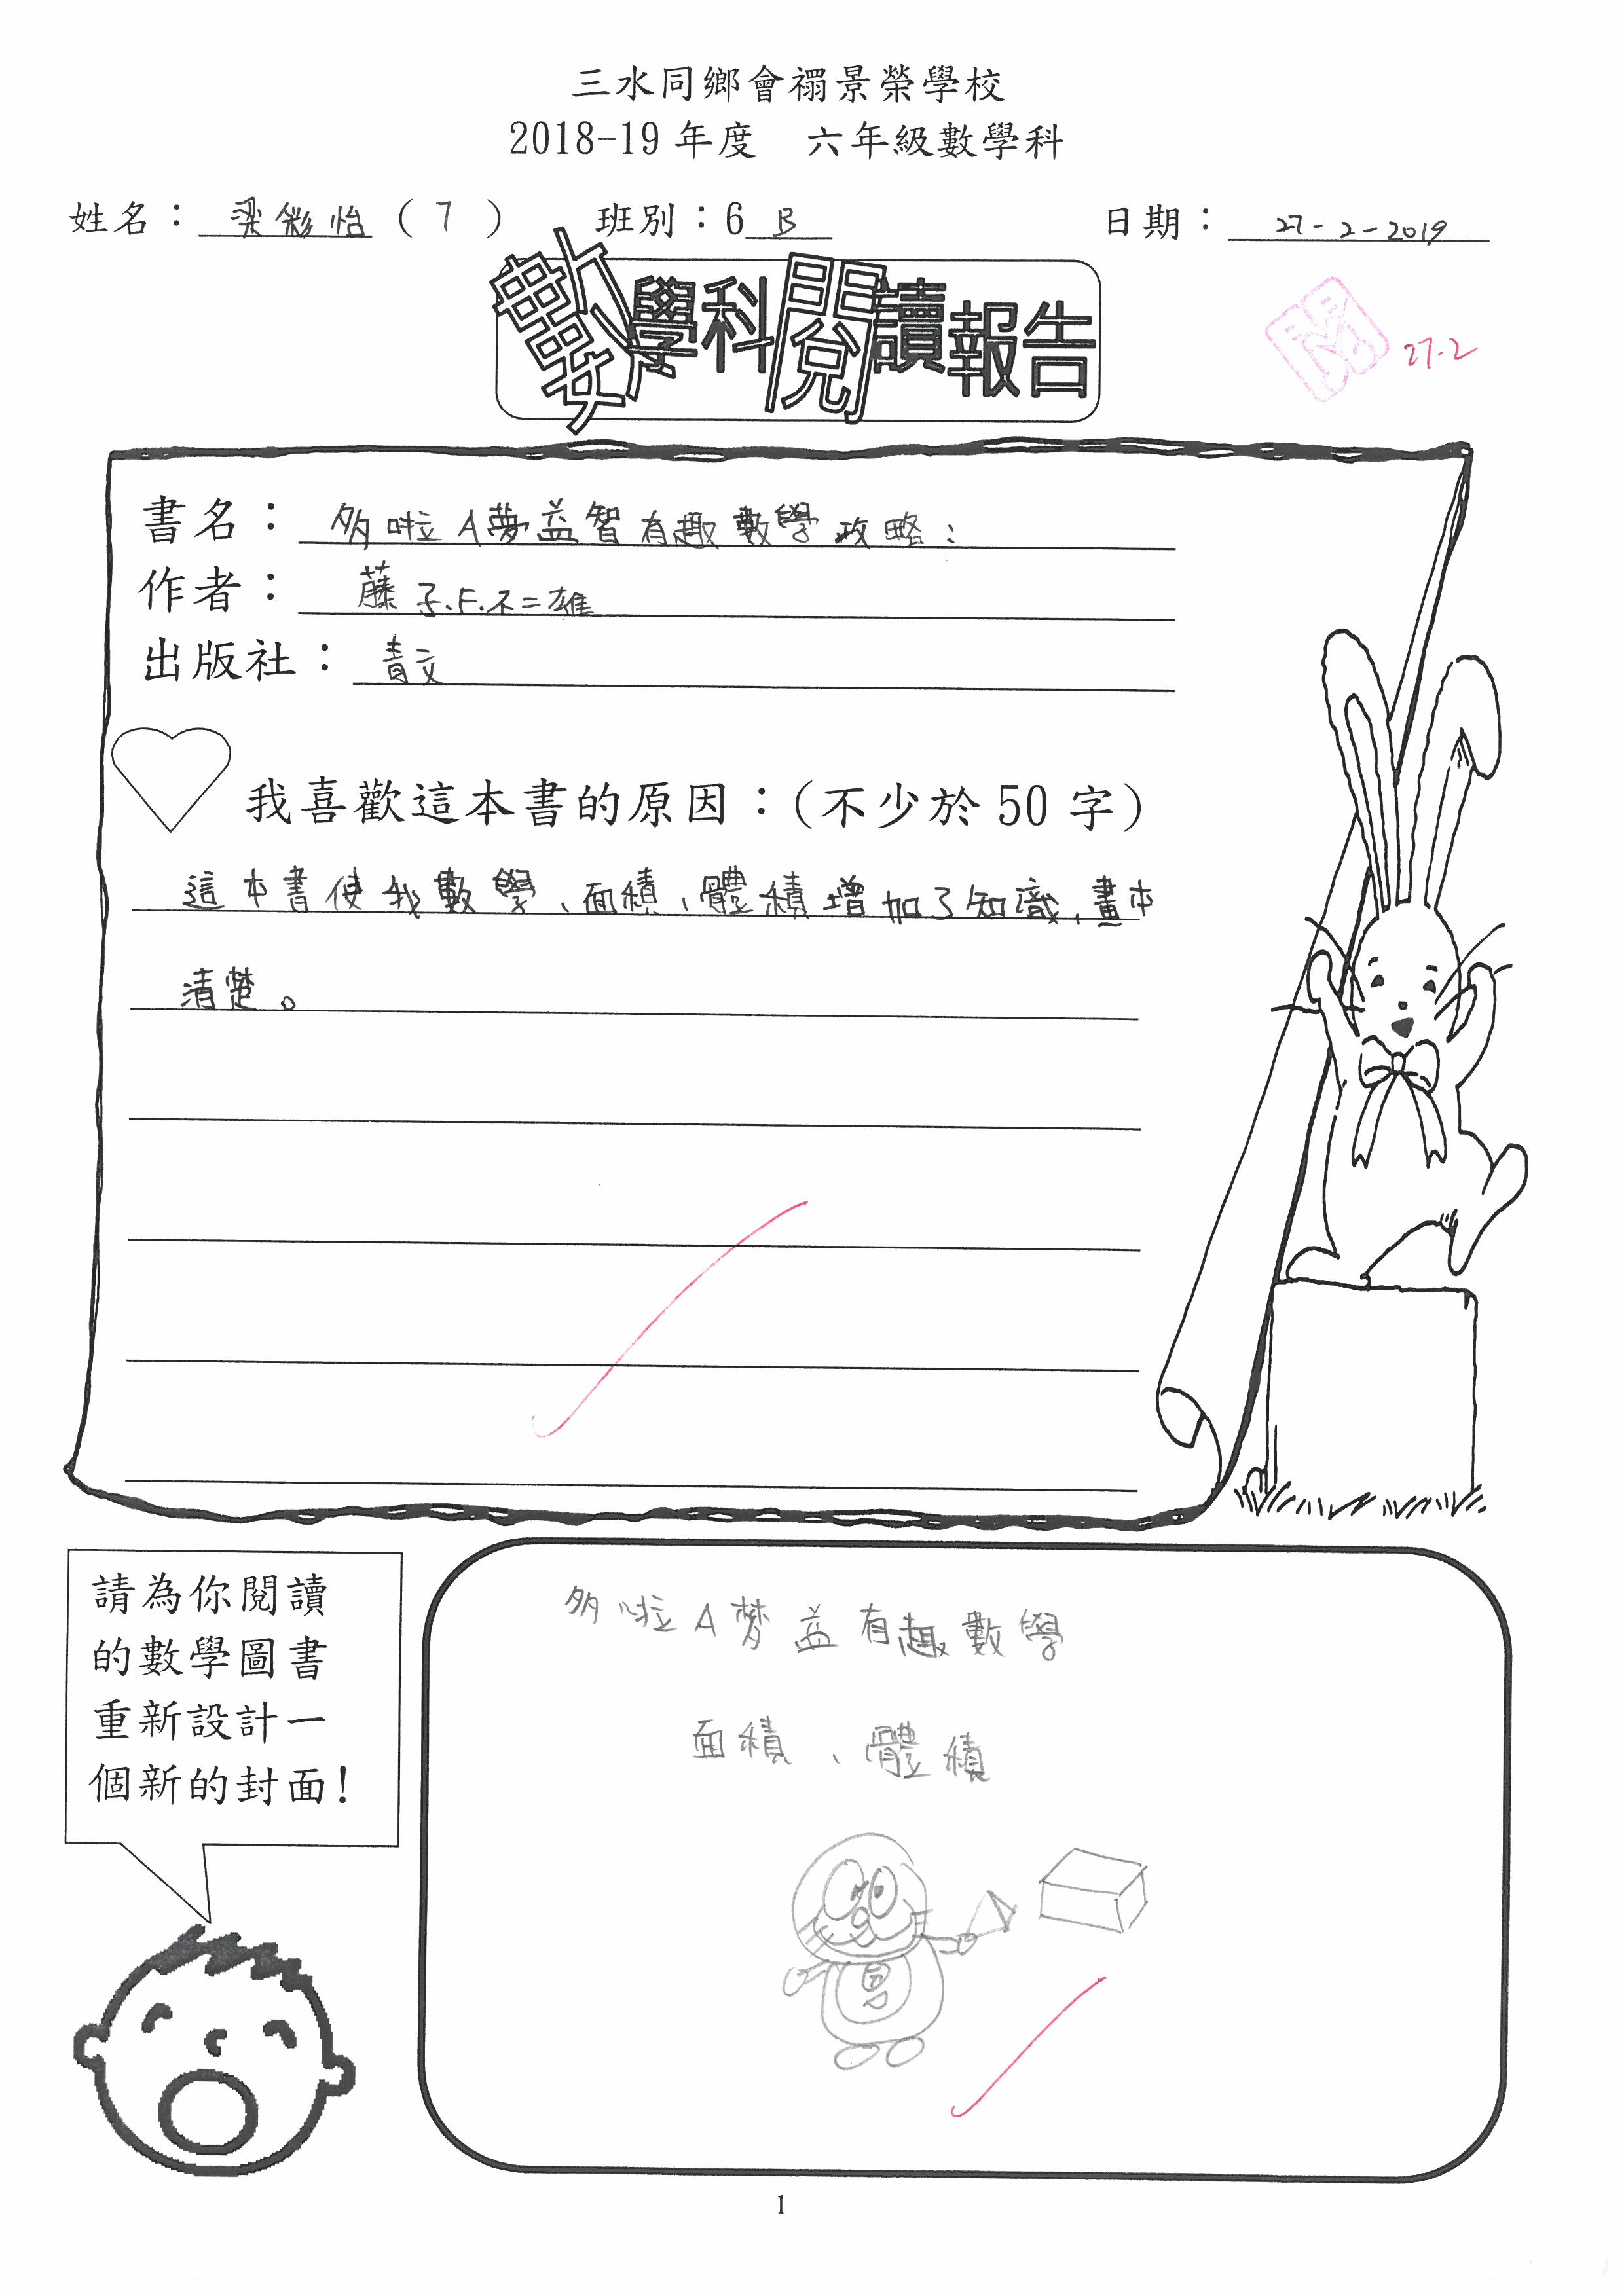 三水同鄉會禤景榮學校
2018-19 年度　六年級數學科
姓名：梁彩怡（7）　班別：6 B　日期：27-2-2019
數學科閱讀報告
27.2
書名：多啦A夢益智有趣數學攻略：
作者：藤子.F.不二雄
出版社：青文
我喜歡這本書的原因：(不少於 50 字)
這本書使我數學、面積、體積增加了知識，畫本
清楚。
請為你閱讀
的數學圖書
重新設計一
個新的封面!
多啦A梦益有趣數學
面積、體積
1